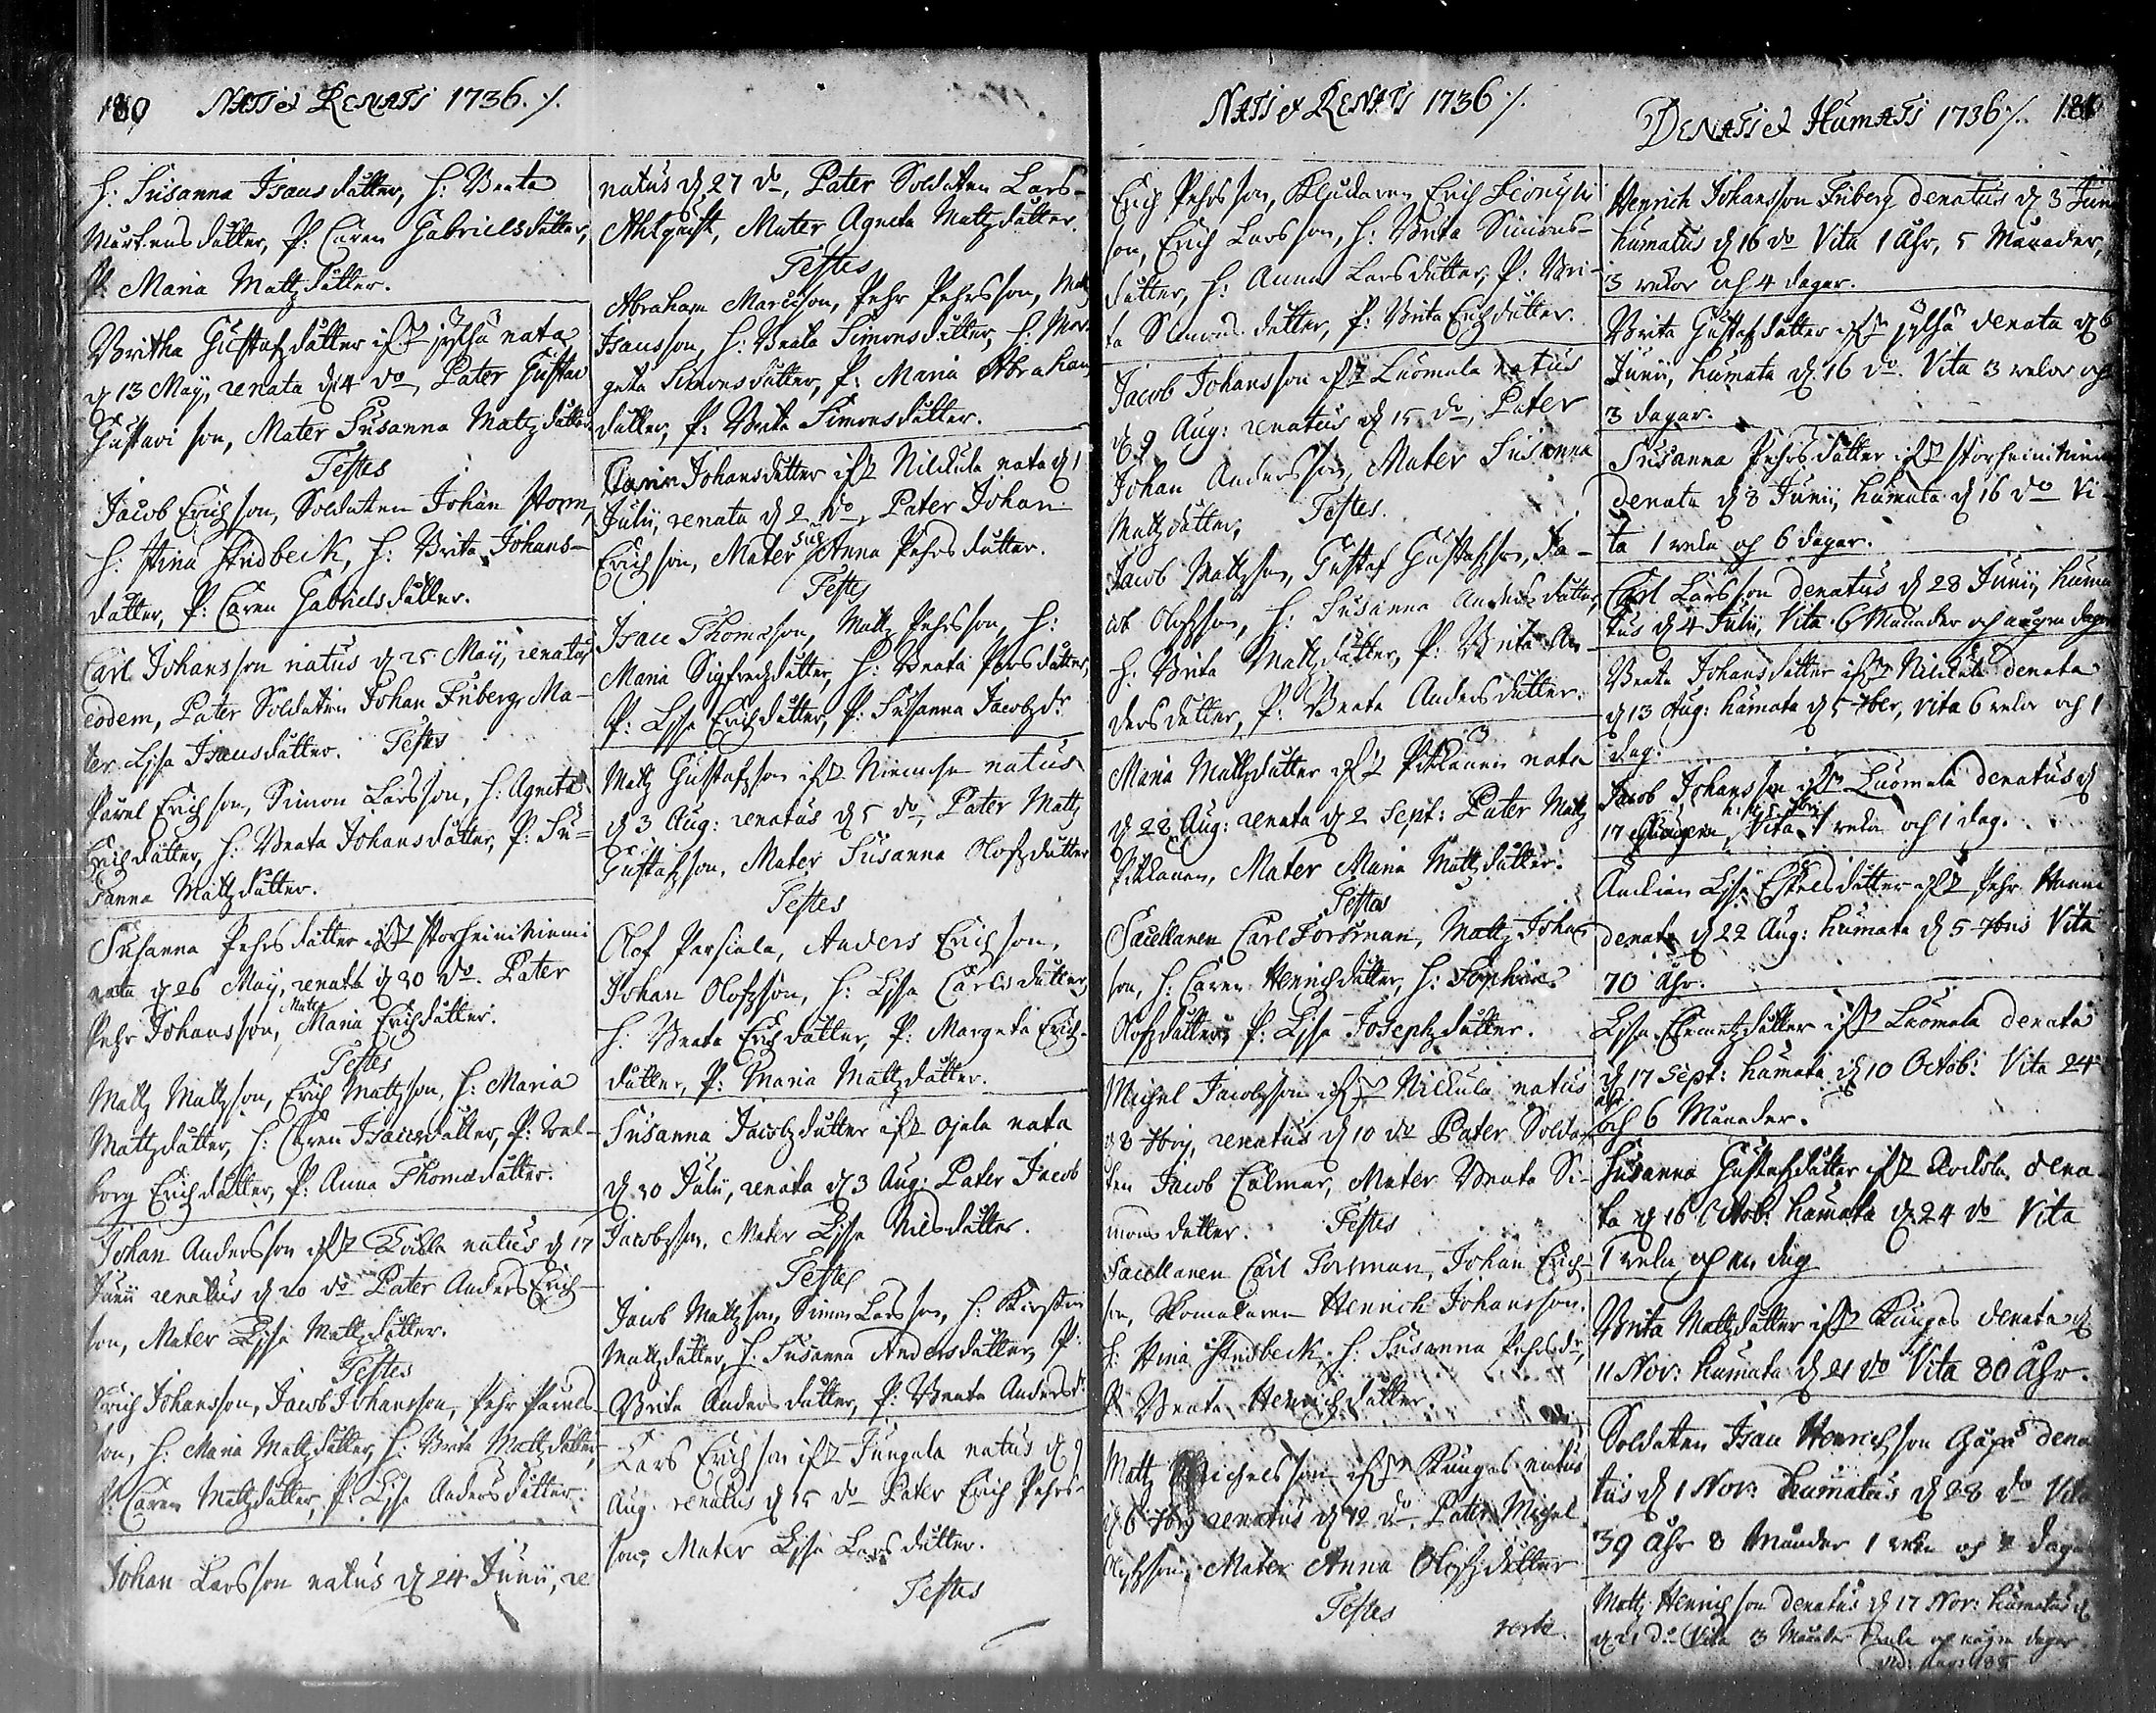 180 NATI et RENATI 1736 ·/.
H: Susanna Isacsdåtter, H: Beata
Mårtensdåtter, P: Caren Gabrielsdåtter,
P: Maria Mattzdåtter.
Britha Gustafzdåtter ifr: jylhä nata
d 13 Maij, renata d 14 do, Pater Gustav
Gustavi son, Mater Susanna Matzdåtter
Testes
Jacob Erichson, Soldaten Johan Storm,
H: Stina Lindbeck, H: Brita Johans-
dåtter, P: Caren Gabrielsdåtter.
Carl Johansson natus d 25 Maij, renatus
eodem, Pater Soldaten Johan Friberg, Ma-
ter Lisa Isacsdåtter. Testes
Påvel Erichson, Simon Larsson, H: Agneta
Erichdåtter, H: Beata Johansdåtter, P: Su-
sanna Mattzdåtter.
Susanna Pehrsdåtter ifr: storheininiemi
nata d 26 Maij, renata d 30 do. Pater
Pehr Johansson, Mater Maria Erichdåtter.
Testes
Mattz Mattzson, Erich Mattzson, H: Maria
Mattzdåtter, H: Caren Isacsdåtter, P: Wal-
borg Erichdåtter, P: Anna Thomædåtter.
Johan Andersson ifr: natus d 17
Junii renatus d 20 do Pater Anders Erich-
son, Mater Lisa Mattzdåtter.
Testes
Erich Johansson, Jacob Johansson, Pehr Påvels-
son, H: Maria Mattzdåtter, H: Brita Mattzdåtter,
P: Caren Mattzdåtter, P: Lisa Andersdåtter.
Johan Larsson natus d 24 Junii, re
natus d 27 do, Pater Soldaten Lars
Ahlquist, Mater Agneta Mattzdåtter.
Testes
Abraham Marcusson, Pehr Pehrsson, Mattz
Isacsson, H: Beata Simonsdåtter, H: Mar-
geta Simonsdåtter, P: Maria Abrahams
dåtter, P: Brita Simonsdåtter.
Carin Johansdåtter ifr: Nickula nata d 1
Julii, renata d 2 do, Pater Johan
Erichson, Mater Anna Pehrsdåtter.
Testes
Isac Thomæson, Mattz Pehrsson, H:
Maria Sigfredzdåtter, H: Beata Persdåtter,
P: Lisa Erichdåtter, P: Susanna Jacobzdr
Matz Gustafzson ifr: Niemise natus
d 3 Aug: renatus d 5 do, Pater Mattz
Gustafzson, Mater Susanna Olofzdåtter
Testes
Olof Parsiala, Anders Erichson,
Johan Olofzson, H: Lisa Carlsdåtter,
H: Beata Erichdåtter, P: Margeta Erich-
dåtter, P: Maria Mattzdåtter.
Susanna Jacobzdåtter ifr: Ojala nata
d 30 Julii, renata d 3 Aug: Pater Jacob
Jacobzson, Mater Lisa Nilsdåtter.
Testes
Jacob Mattzson, Simon Larsson, H: Kirstin
Mattzdåtter, H: Susanna Andersdåtter, P:
Brita Andersdåtter, P: Beata Andersdr
Lars Erichson ifr: Jungala natus d 9
Aug: renatus d 15 do Pater Erich Pehrs-
son, Mater Lisa Larsdåtter.
Testes
NATI et RENATI 1736 ·/.
Erich Pehrsson, Klåckaren Erich Dionysii
son, Erich Larsson, H: Brita Simons-
dåtter, H: Anna Larsdåtter, P: Bri-
ta Simonsdåtter, P: Brita Erichdåtter.
Jacob Johansson ifr: Luomala natus
d 9 Aug: renatus d 15 do, Pater
Johan Andersson, Mater Susanna
Mattzdåtter, Testes
Jacob Mattzson, Gustaf Gustafzson, Ja-
cob Olofzson, H: Susanna Andersdåtter,
H: Brita Mattzdåtter, P: Brita An-
dersdåtter, P: Beata Andersdåtter.
Maria Mattzdåtter ifr: Pitkänen nata
d 28 Aug: renata d 2 Sept: Pater Mattz
Pitkänen, Mater Maria Mattzdåtter.
Testes
Sacellanen Carl Forsman, Mattz Johans
son, H: Caren Henrichdåtter, H: Sophia
Olofzdåtter, P: Lisa Josephzdåtter.
Michel Jacobsson ifr: Nickula natus
d 8 7brij, renatus d 10 do Pater Solda-
ten Jacob Calmar, Mater Beata Si-
monsdåtter. Testes
Sacellanen Carl Forsman, Johan Erich-
son, Skomakaren Henrich Johansson.
H: Stina Lindbeck, H: Susanna Pehrsdr,
P: Beata Henrichdåtter.
Mattz Michelsson ifr: Kungas natus
d 6 7brij renatus d 12 do, Pater Michel
Olofzson, Mater Anna Olofzdåtter
Testes verte.
DENATI et HUMATI 1736 ·/. 181
Henrich Johansson Friberg denatus d 3 Junii
humatus d 16 do Vita 1 åhr, 5 Månader,
3 wekor och 4 dagar.
Brita Gustafzdåtter ifr: jylhä denata d 6
Junii, humata d 16 do. Vita 3 wekor och
3 dagar.
Susanna Pehrsdåtter ifr: storheininiemi
denata d 8 Junii, humata d 16 do Vi-
ta 1 weka och 6 dagar.
Carl Larsson denatus d 28 Junii, huma
tus d 4 Julii, Vita 6 Månader och några dagar
Beata Johansdåtter ifr: Nickula denata
d 13 Aug: humata d 5 7ber, vita 6 wekor och 1
dag.
Jacob Johansson ifr: Luomala denatus d
17 Vita 1 weka och 1 dag.
Änckian Lisa Eskelsdåtter ifr:
denata d 22 Aug: humata d 5 7bris Vita
70 åhr.
Lisa Clemetzdåtter ifr: Luomala denata
d 17 Sept: humata d 10 Octob: Vita 24
åhr och 6 Månader.
Susanna Gustafzdåtter ifr: dena-
ta d 16 Octob: humata d 24 do Vita
1 weka och en dag
Brita Mattzdåtter ifr: Kungas denata d
11 Nov: humata d 21 do Vita 80 åhr.
Soldaten Isac Henrichson dena
tus d 1 Nov: humatus d 28 do Vita
39 åhr 8 Månader 1 weka och dagar
Mattz Henrichson denatus d 17 Nov: humatus
d 21 do Vita 3 Månader weka och några dagar
vid: pag: 185